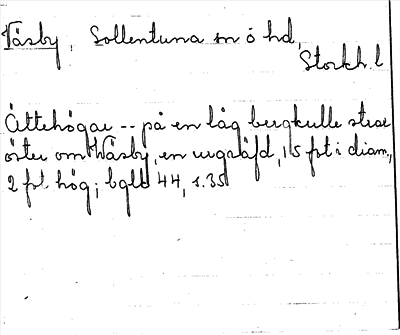 Väsby, Sollentuna sn o hd,
Storkh. l
Ättehögar -- på en låg bergkulle strax
öster om Wäsby, en urgräfd, 15 fot i diam.,
2 fot hög; bglb 44, s. 35